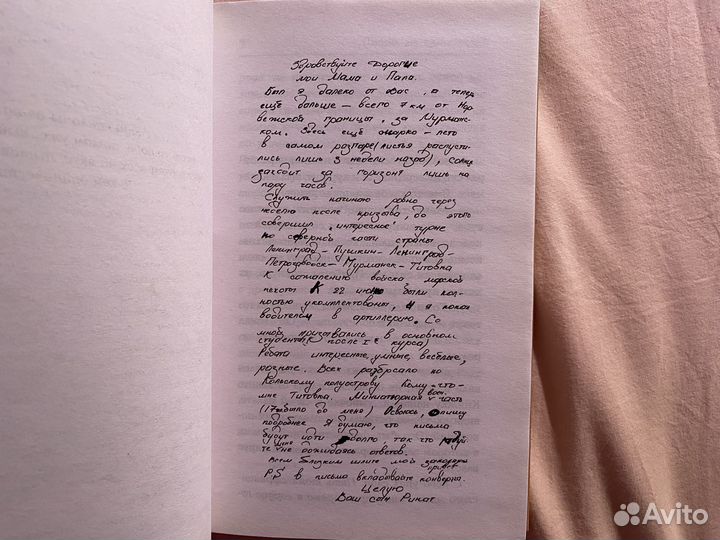 Здравствуйте Дорогие
мои Мама и Папа.
Был я далеко от Вас, а теперь
ещё дальше – всего 7 км от Нор-
вежской границы, за Мурманс-
ком. Здесь ещё жарко – лето
в самом разгаре (листья распусти-
лись лишь 3 недели назад), солнце
заходит за горизонт лишь на
пару часов.
Служить начинаю ровно через
неделю после призыва, до этого
совершил "интересное" турне
по северной части страны
Ленинград – Пушкин – Ленинград –
Петрозаводск – Мурманск – Титовка
К сожалению войска морской
пехоты К 22 июню были пол-
ностью укомплектованы, и я попал
водителем в артиллерию. Со
мной призывались в основном
студенты (после I курса)
Ребята интересные, умные, весёлые,
разные. Всех разбросало по
Кольскому полуострову кому – что –
мне Титовка. Миниатюрная воен. часть
(17 было до меня) Освоюсь, опишу
подробнее Я думаю, что письма
будут идти долго, так что
те мне не дожидаясь ответов.
Всем близким шлите мой
привет
P.S в письма вкладывайте конверты.
Целую
Ваш сын Ринат
Avito